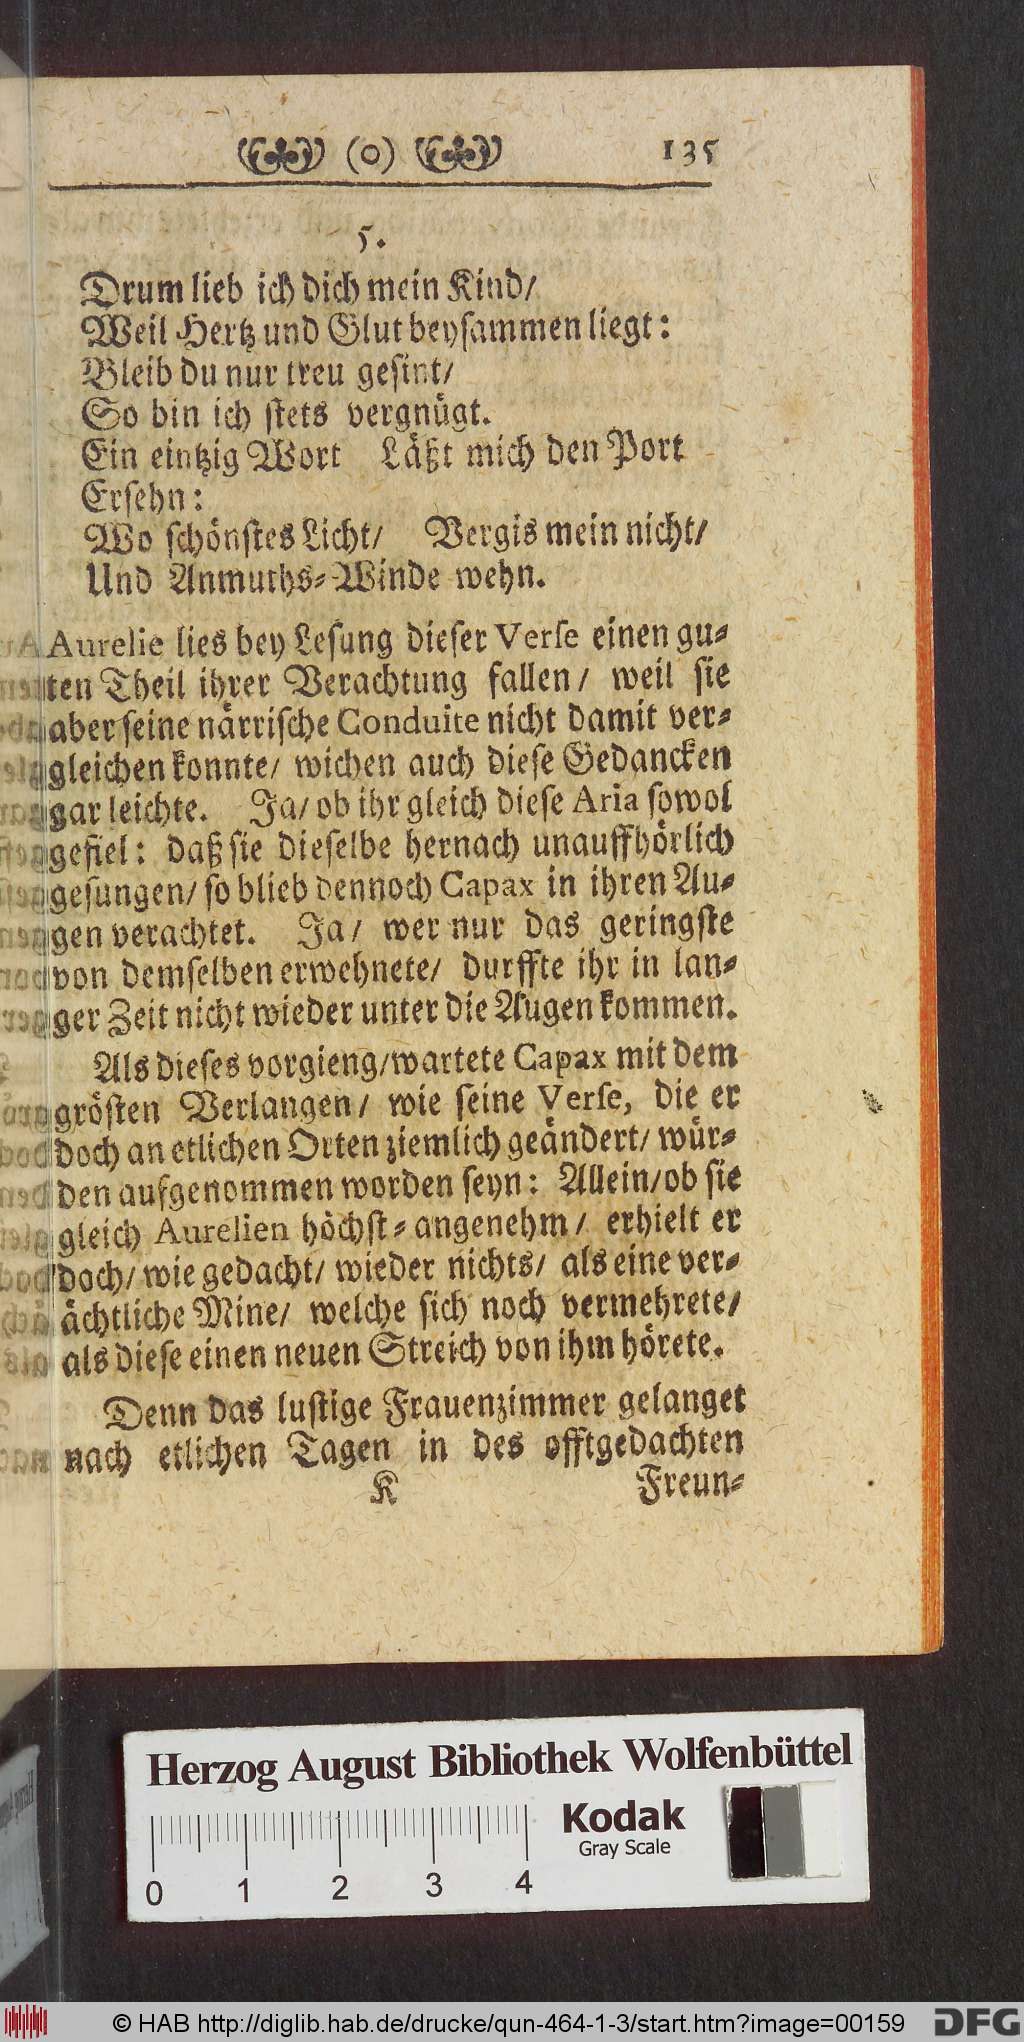 (o) 135
5.
Drum lieb ich dich mein Kind/
Weil Hertz und Glut beysammen liegt:
Bleib du nur treu gesint/
So bin ich stets vergnügt.
Ein eintzig Wort Läßt mich den Port
Ersehn:
Wo schönstes Licht/ Vergis mein nicht/
Und Anmuths-Winde wehn.
Aurelie lies bey Lesung dieser Verse einen gu-
ten Theil ihrer Verachtung fallen/ weil sie
aber seine närrische Conduite nicht damit ver-
gleichen konnte/ wichen auch diese Gedancken
gar leichte. Ja/ ob ihr gleich diese Aria sowol
gefiel: daß sie dieselbe hernach unauffhörlich
gesungen/ so blieb dennoch Capax in ihren Au-
gen verachtet. Ja/ wer nur das geringste
von demselben erwehnete/ durffte ihr in lan-
ger Zeit nicht wieder unter die Augen kommen.
Als dieses vorgieng/ wartete Capax mit dem
grösten Verlangen/ wie seine Verse, die er
doch an etlichen Orten ziemlich geändert/ wür-
den aufgenommen worden seyn: Allein/ ob sie
gleich Aurelien höchst-angenehm/ erhielt er
doch/ wie gedacht/ wieder nichts/ als eine ver-
ächtliche Mine/ welche sich noch vermehrete/
als diese einen neuen Streich von ihm hörete.
Denn das lustige Frauenzimmer gelanget
nach etlichen Tagen in des offtgedachten
K Freun-
Herzog August Bibliothek Wolfenbüttel
Kodak
Gray Scale
0 1 2 3 4
© HAB http://diglib.hab.de/drucke/qun-464-1-3/start.htm?image=00159
DFG